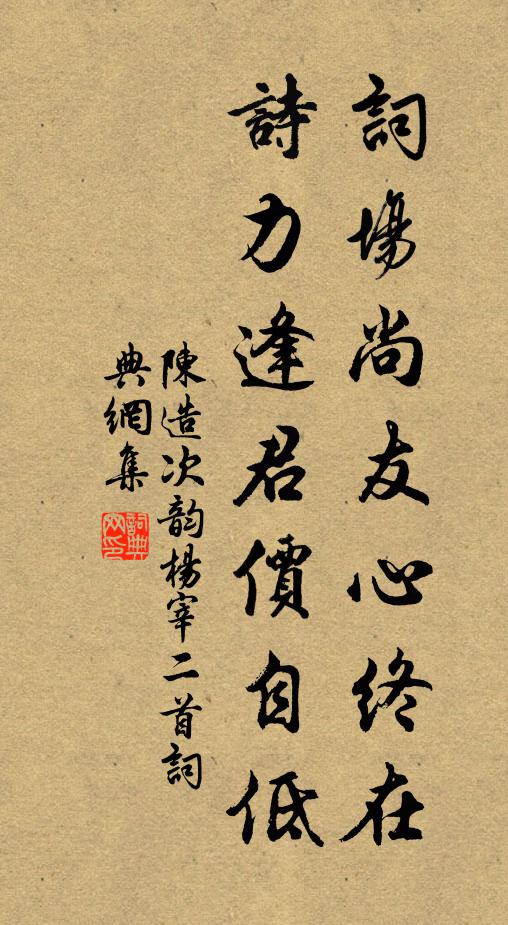 詞場尚友心終在
詩力逢君價自低
陳造次韵楊宰二首詞
典網集
詞典網印